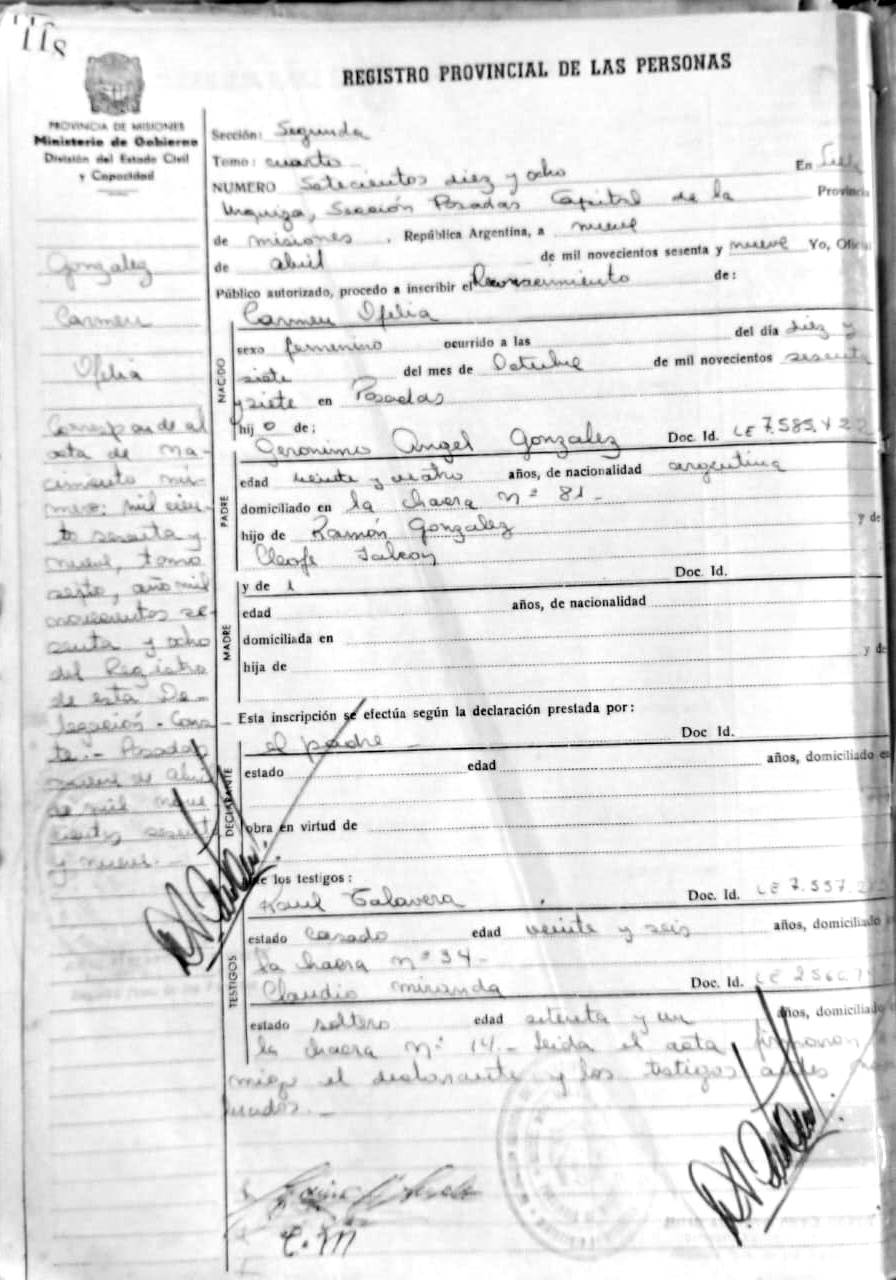 118
REGISTRO PROVINCIAL DE LAS PERSONAS
PROVINCIA DE MISIONES
Ministerio de Gobierno
División del Estado Civil
y Capacidad
Gonzalez
Carmen
Ofelia
Corresponde al
acta de na-
cimiento nú-
mero: mil cien-
to sesenta y
nueve, tomo
septo, año mil
novecientos se-
senta y ocho
del Registro
de esta De-
legación. - Cons-
te. - Posadas
nueve de abril
de mil nove
cientos sesenta
y nueve. -
Sección: Segunda
Tomo: cuarto
NUMERO Setecientos diez y ocho En
Urquiza, Sección Posadas Capital de la Provincia
de misiones, República Argentina, a nueve
de abril de mil novecientos sesenta y nueve Yo, Oficial
Público autorizado, procedo a inscribir el Reconocimiento de:
NACIDO
Carmen Ofelia
sexo femenino ocurrido a las del día diez y
siete del mes de Octubre de mil novecientos sesenta
y siete en Posadas
hij o de:
PADRE
Geronimo Angel Gonzalez Doc. Id. LE 7.585.422
edad veinte y cuatro años, de nacionalidad argentina
domiciliado en la chacra nº 81 -
hijo de Ramón Gonzalez y de
Cleofe
MADRE
y de Doc. Id.
edad años, de nacionalidad
domiciliada en
hija de y de
Esta inscripción se efectúa según la declaración prestada por:
DECLARANTE
el padre - Doc. Id.
estado edad años, domiciliado en
obra en virtud de
los testigos:
TESTIGOS
Raul Talavera Doc. Id. LE 7.557.
estado casado edad veinte y seis años, domiciliado
la chacra nº 34 -
Claudio miranda Doc. Id. LE
estado soltero edad setenta y un años, domiciliado
la chacra nº 14. - Leida el acta firmaron
el declarante y los testigos antes
C. M